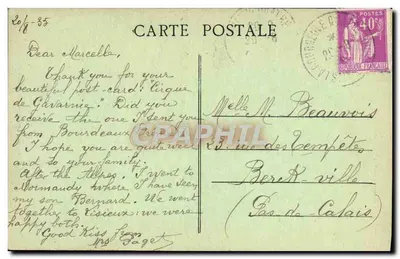 20/8-35
CARTE POSTALE
Dear Marcelle,
Thank you for your
beautiful post-card "Cirque
de Gavarnie". Did you
receive the one I sent you
from Bourdeaux
I hope you are quite well
and to your family.
After the Alpes, I went to
Normandy where I have seen
my son Bernard. We went
together to Lisieux; we were
happy both.
Good Kiss from
Mrs Paget
40c
POSTES
Melle M. Beauvois
23, rue des Tempêtes
Berck-ville
(Pas de Calais)
CARTHAGRAPH.COM